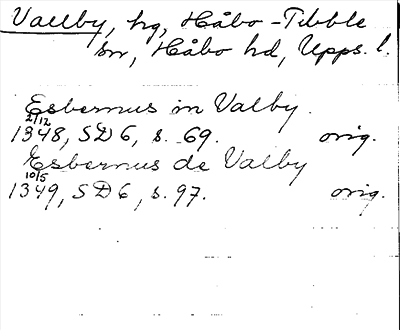 Vallby, hg, Håbo-Tibble
sn, Håbo hd, Upps. l.
Esbernus in Valby.
2/12
1348, SD 6, s. 69. orig.
Esbernus de Valby
10/5
1349, SD 6, s. 97. orig.